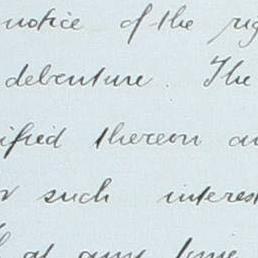 notice of the rig
debenture. The
ified thereon an
such interest
at any time